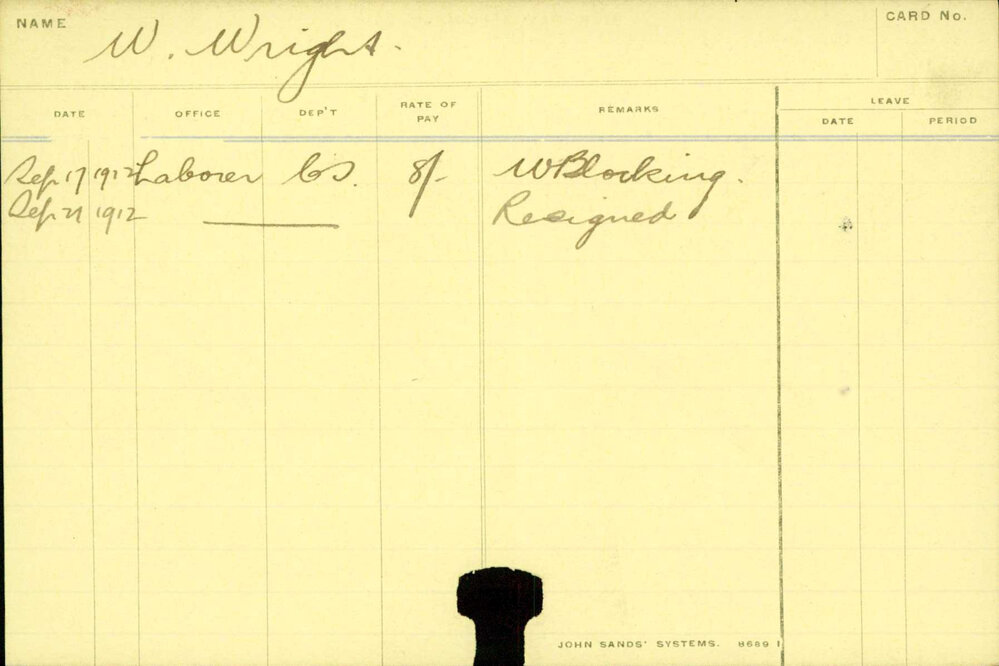 NAME W. Wright. CARD No.
DATE OFFICE DEP'T RATE OF PAY REMARKS LEAVE
DATE PERIOD
Sep 17 1912 Laborer CS. 8/- W Blocking.
Sep 21 1912 Resigned
JOHN SANDS' SYSTEMS. 8689 1